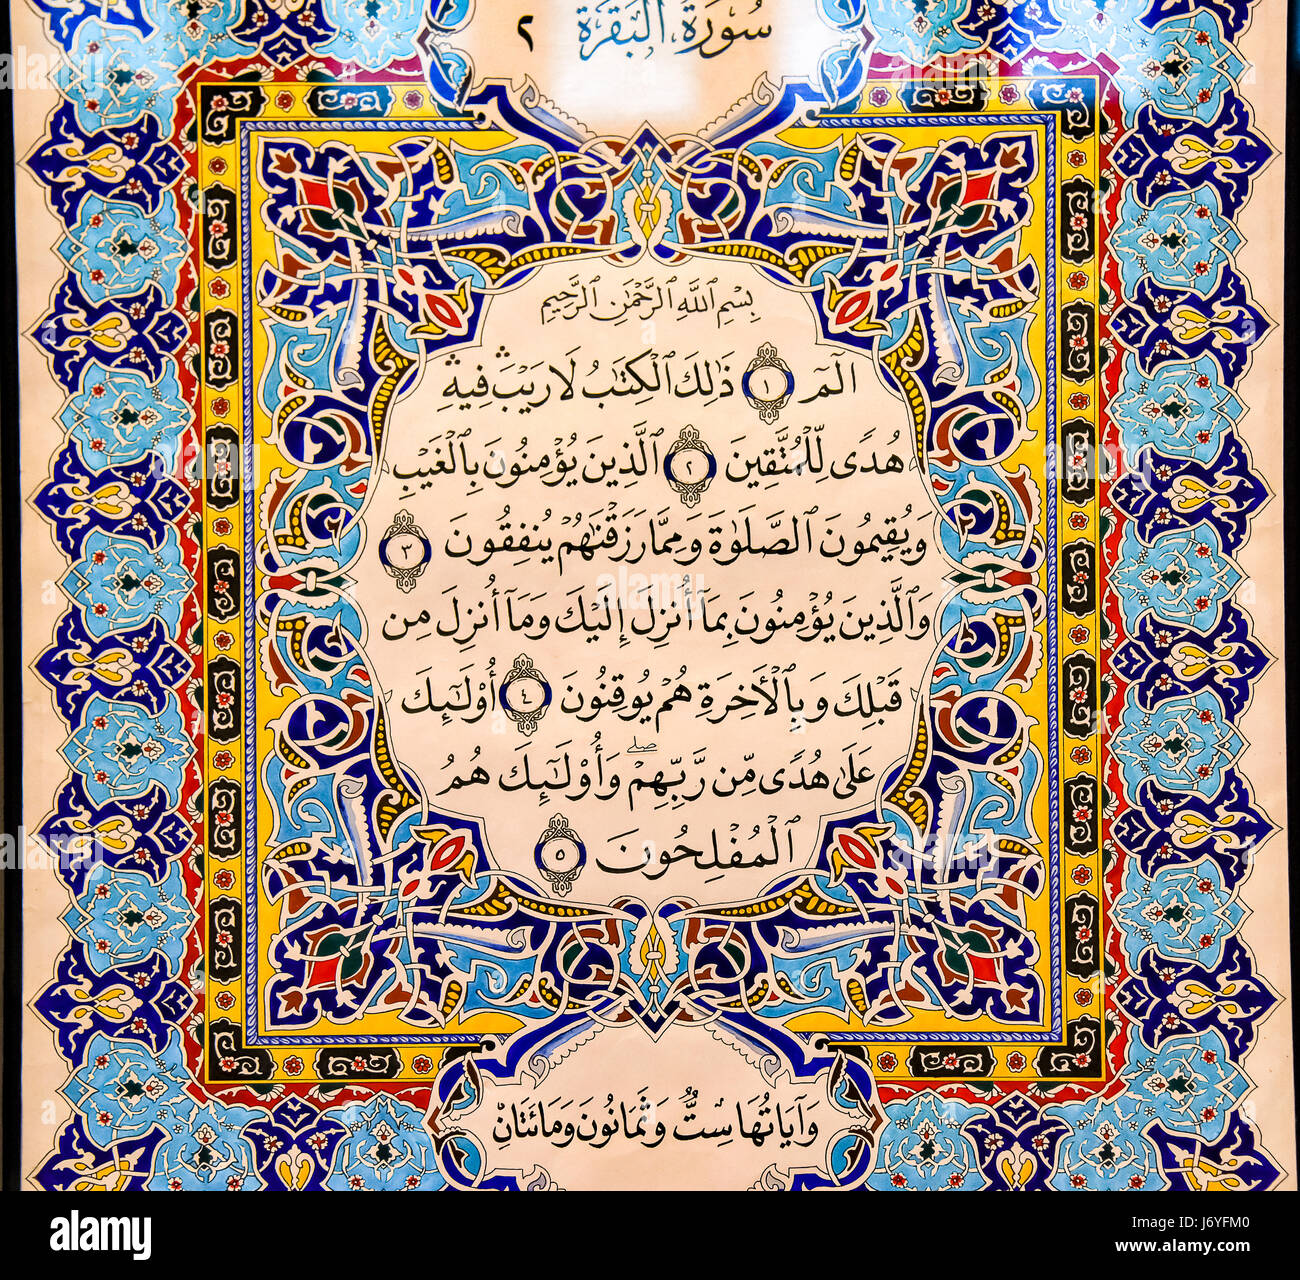 سُورَةُ ٱلْبَقَرَةِ ٢
بِسْمِ ٱللَّهِ ٱلرَّحْمَٰنِ ٱلرَّحِيمِ
الٓمٓ ١ ذَٰلِكَ ٱلْكِتَٰبُ لَا رَيْبَ ۛ فِيهِ ۛ
هُدًى لِّلْمُتَّقِينَ ٢ ٱلَّذِينَ يُؤْمِنُونَ بِٱلْغَيْبِ
وَيُقِيمُونَ ٱلصَّلَوٰةَ وَمِمَّا رَزَقْنَٰهُمْ يُنفِقُونَ ٣
وَٱلَّذِينَ يُؤْمِنُونَ بِمَآ أُنزِلَ إِلَيْكَ وَمَآ أُنزِلَ مِن
قَبْلِكَ وَبِٱلْأَخِرَةِ هُمْ يُوقِنُونَ ٤ أُوْلَٰٓئِكَ
عَلَىٰ هُدًى مِّن رَّبِّهِمْ ۖ وَأُوْلَٰٓئِكَ هُمُ
ٱلْمُفْلِحُونَ ٥
وَآيَاتُهَا سِتٌّ وَثَمَانُونَ وَمَائَتَانِ
alamy
Image ID: J6YFM0
www.alamy.com